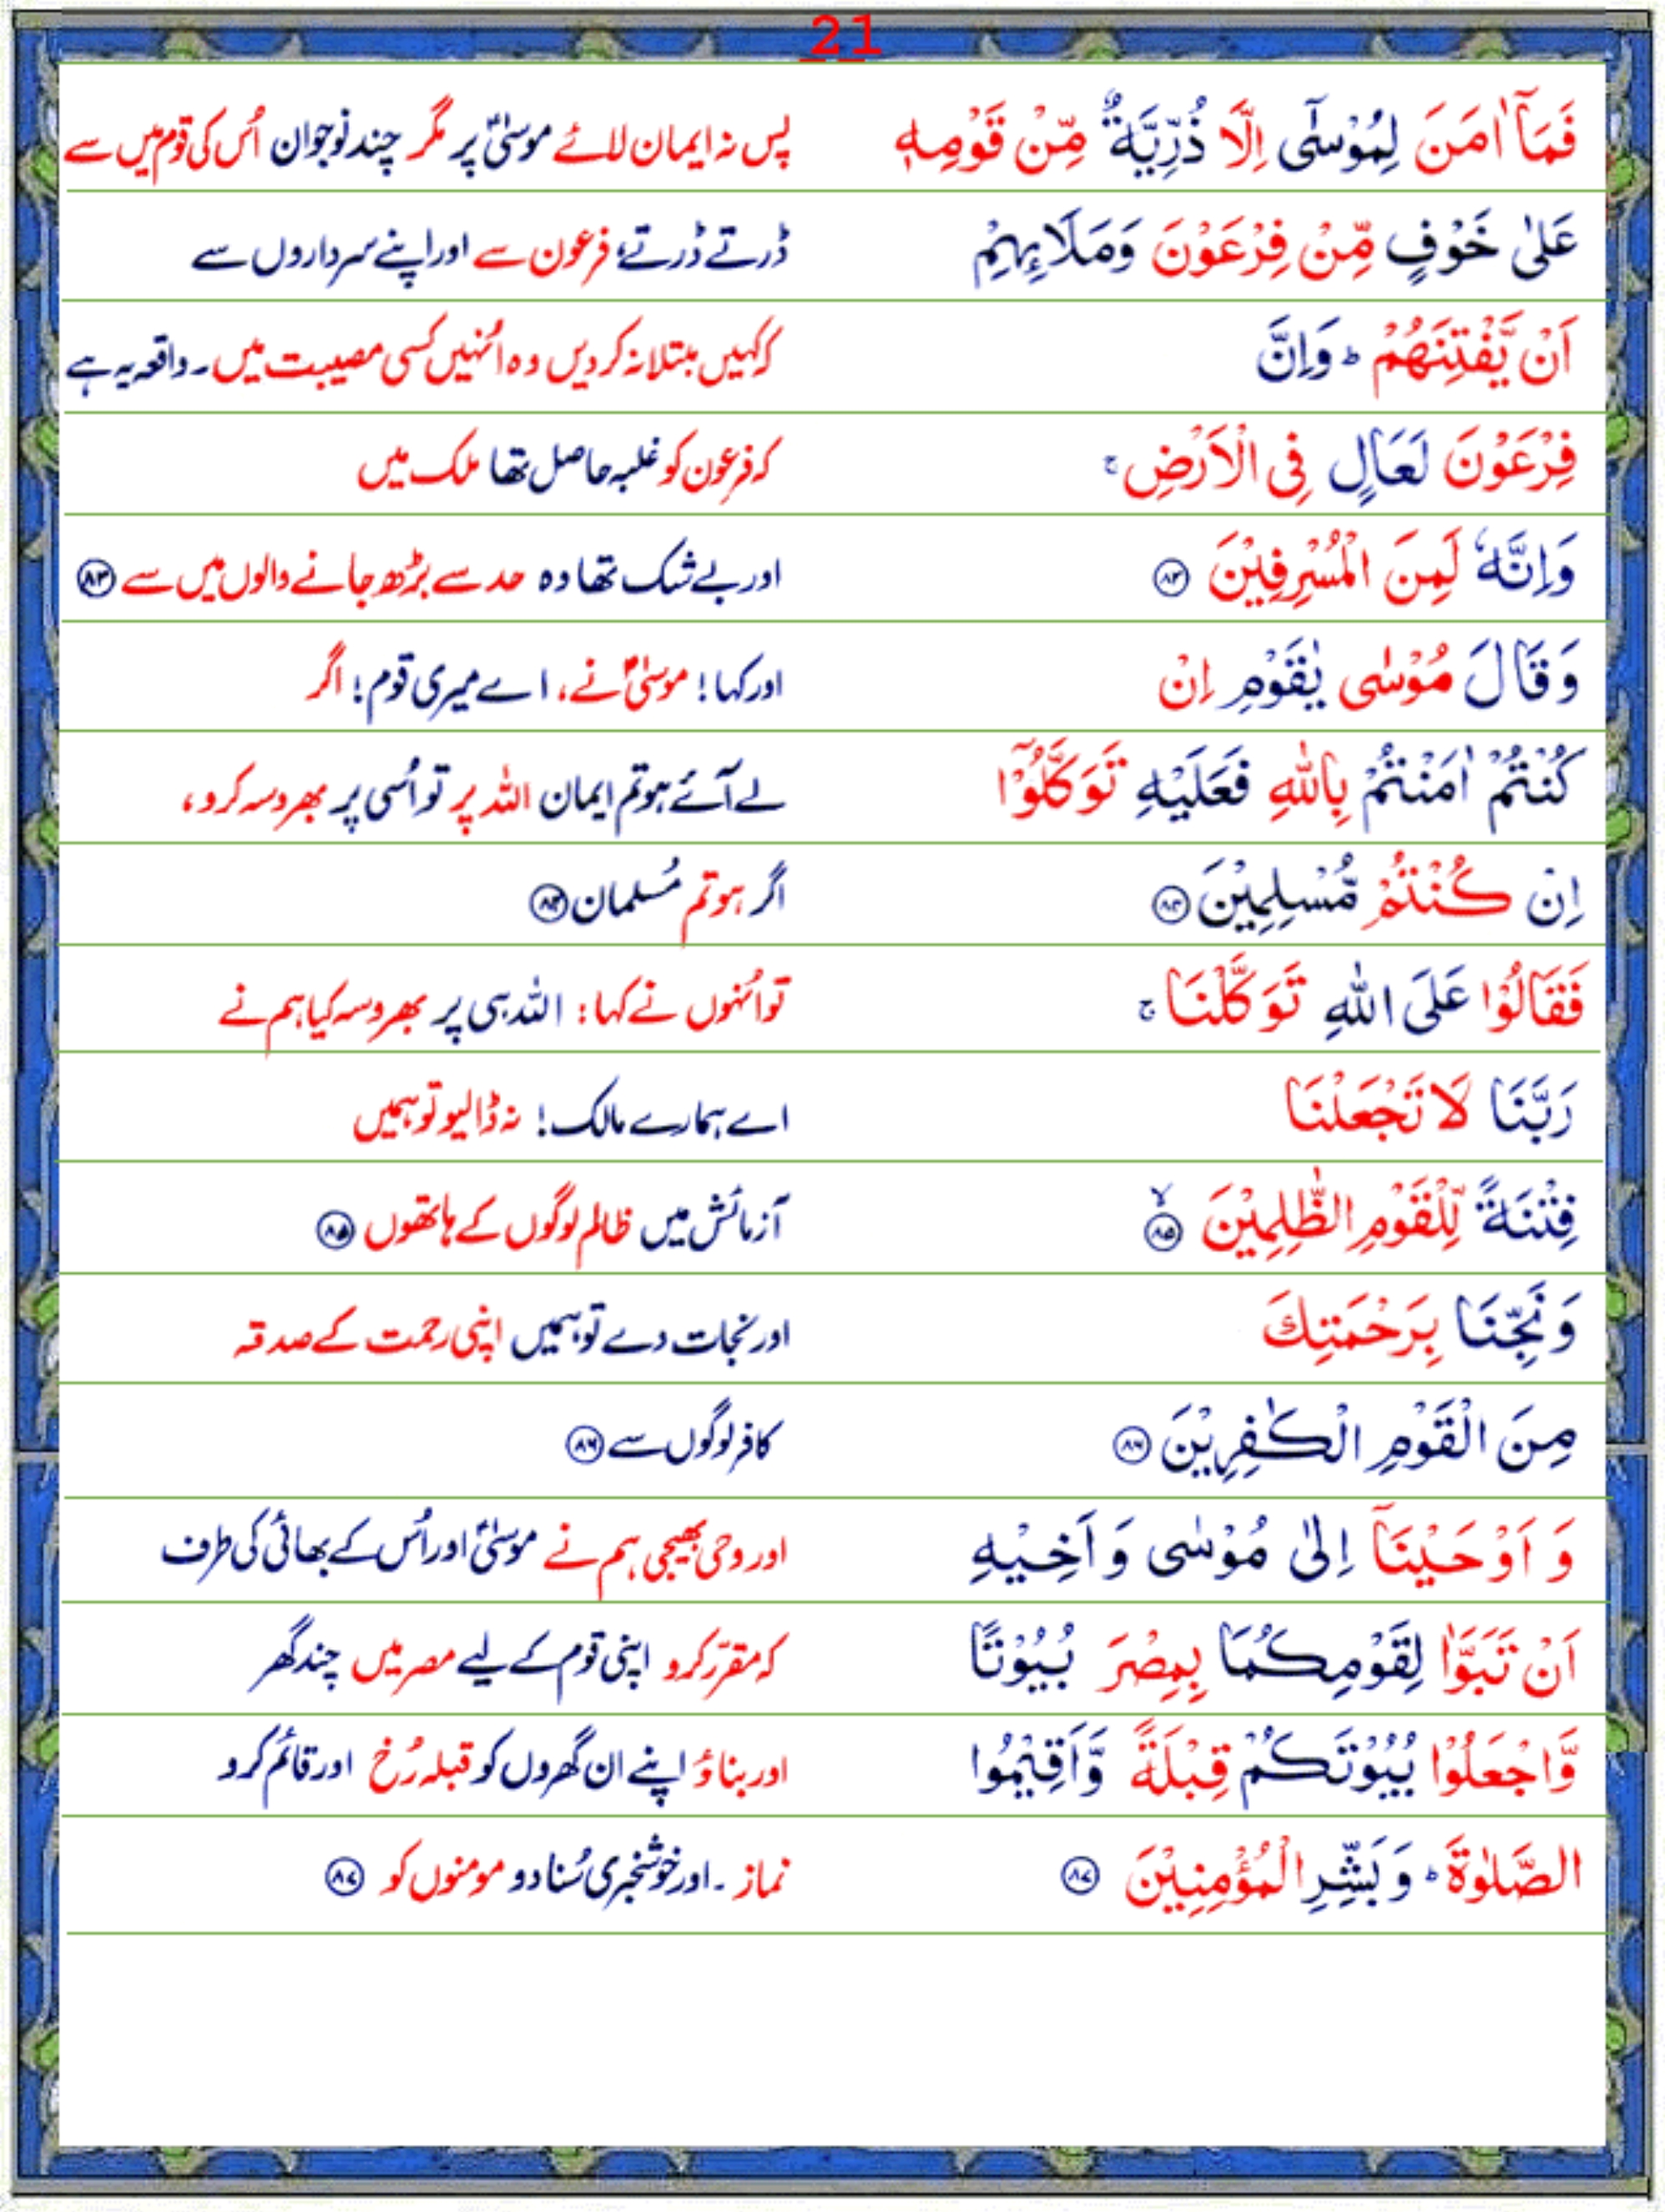 21
فَمَآ اٰمَنَ لِمُوْسٰٓى اِلَّا ذُرِّيَّةٌ مِّنْ قَوْمِهٖ پس نہ ایمان لائے موسیٰؑ پر مگر چند نوجوان اُس کی قوم میں سے
عَلٰى خَوْفٍ مِّنْ فِرْعَوْنَ وَمَلَا۟ئِهِمْ ڈرتے ڈرتے، فرعون سے اور اپنے سرداروں سے
اَنْ يَّفْتِنَهُمْ ؕ وَاِنَّ کہ کہیں مبتلا نہ کر دیں وہ اُنہیں کسی مصیبت میں۔ واقعہ یہ ہے
فِرْعَوْنَ لَعَالٍ فِى الْاَرْضِ ۚ کہ فرعون کو غلبہ حاصل تھا ملک میں
وَاِنَّهٗ لَمِنَ الْمُسْرِفِيْنَ ۸۳ اور بے شک تھا وہ حد سے بڑھ جانے والوں میں سے ۸۳
وَقَالَ مُوْسٰى يٰقَوْمِ اِنْ اور کہا! موسیٰؑ نے، اے میری قوم! اگر
كُنْتُمْ اٰمَنْتُمْ بِاللّٰهِ فَعَلَيْهِ تَوَكَّلُوْٓا لے آئے ہو تم ایمان اللہ پر تو اُسی پر بھروسہ کرو،
اِنْ كُنْتُمْ مُّسْلِمِيْنَ ۸۴ اگر ہو تم مُسلمان ۸۴
فَقَالُوْا عَلَى اللّٰهِ تَوَكَّلْنَا ۚ تو اُنہوں نے کہا: اللہ ہی پر بھروسہ کیا ہم نے
رَبَّنَا لَا تَجْعَلْنَا اے ہمارے مالک! نہ ڈالیو تو ہمیں
فِتْنَةً لِّلْقَوْمِ الظّٰلِمِيْنَ ۙ ۸۵ آزمائش میں ظالم لوگوں کے ہاتھوں ۸۵
وَنَجِّنَا بِرَحْمَتِكَ اور نجات دے تو ہمیں اپنی رحمت کے صدقہ
مِنَ الْقَوْمِ الْكٰفِرِيْنَ ۸۶ کافر لوگوں سے ۸۶
وَ اَوْحَيْنَآ اِلٰى مُوْسٰى وَ اَخِيْهِ اور وحی بھیجی ہم نے موسیٰؑ اور اُس کے بھائی کی طرف
اَنْ تَبَوَّاٰ لِقَوْمِكُمَا بِمِصْرَ بُيُوْتًا کہ مقرّر کرو اپنی قوم کے لیے مصر میں چند گھر
وَّاجْعَلُوْا بُيُوْتَكُمْ قِبْلَةً وَّاَقِيْمُوا اور بناؤ اپنے ان گھروں کو قبلہ رُخ اور قائم کرو
الصَّلٰوةَ ؕ وَبَشِّرِ الْمُؤْمِنِيْنَ ۸۷ نماز۔ اور خوشخبری سُنا دو مومنوں کو ۸۷